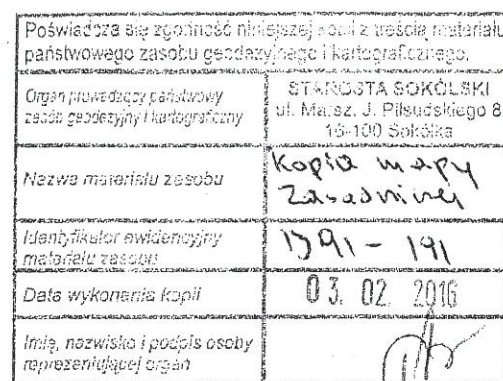 Poświadcza się zgodność niniejszej kopii z treścią materiału
państwowego zasobu geodezyjnego i kartograficznego.
Organ prowadzący państwowy
zasób geodezyjny i kartograficzny
STAROSTA SOKÓLSKI
ul. Marsz. J. Piłsudskiego 8
16-100 Sokółka
Nazwa materiału zasobu
Kopia mapy
Zasadniczej
Identyfikator ewidencyjny
materiału zasobu
191
Data wykonania kopii
03. 02. 2016
Imię, nazwisko i podpis osoby
reprezentującej organ